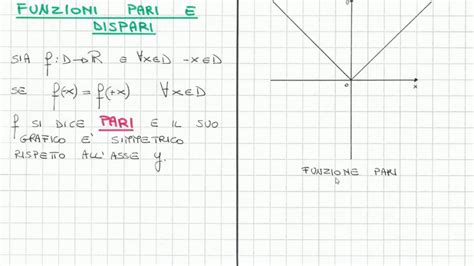 FUNZIONI PARI E
DISPARI
SIA f: D→R E ∀x∈D -x∈D
SE f(-x) = f(+x) ∀x∈D
f SI DICE PARI E IL SUO
GRAFICO E' SIMMETRICO
RISPETTO ALL'ASSE y.
0
x
FUNZIONE PARI